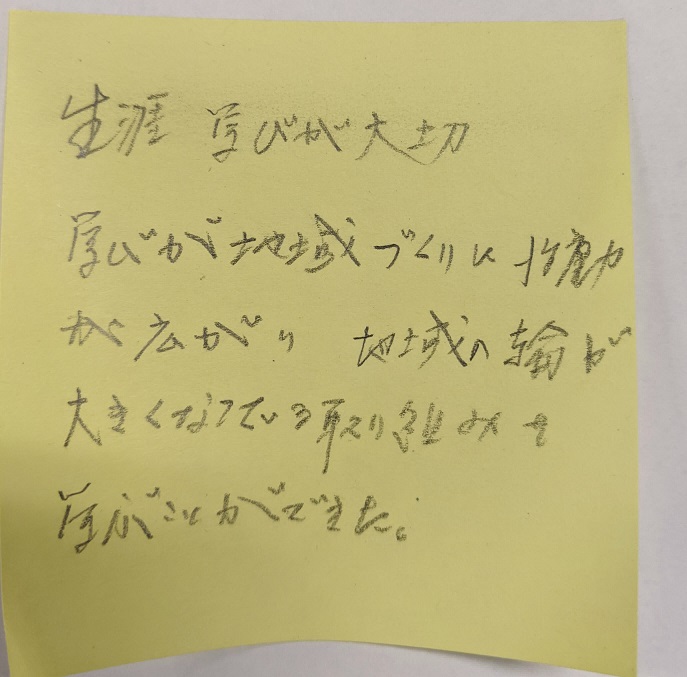 生涯 学びが大切
学びが地域づくりに行動
が広がり 地域の輪が
大きくなっている取り組みを
学ぶことができた。